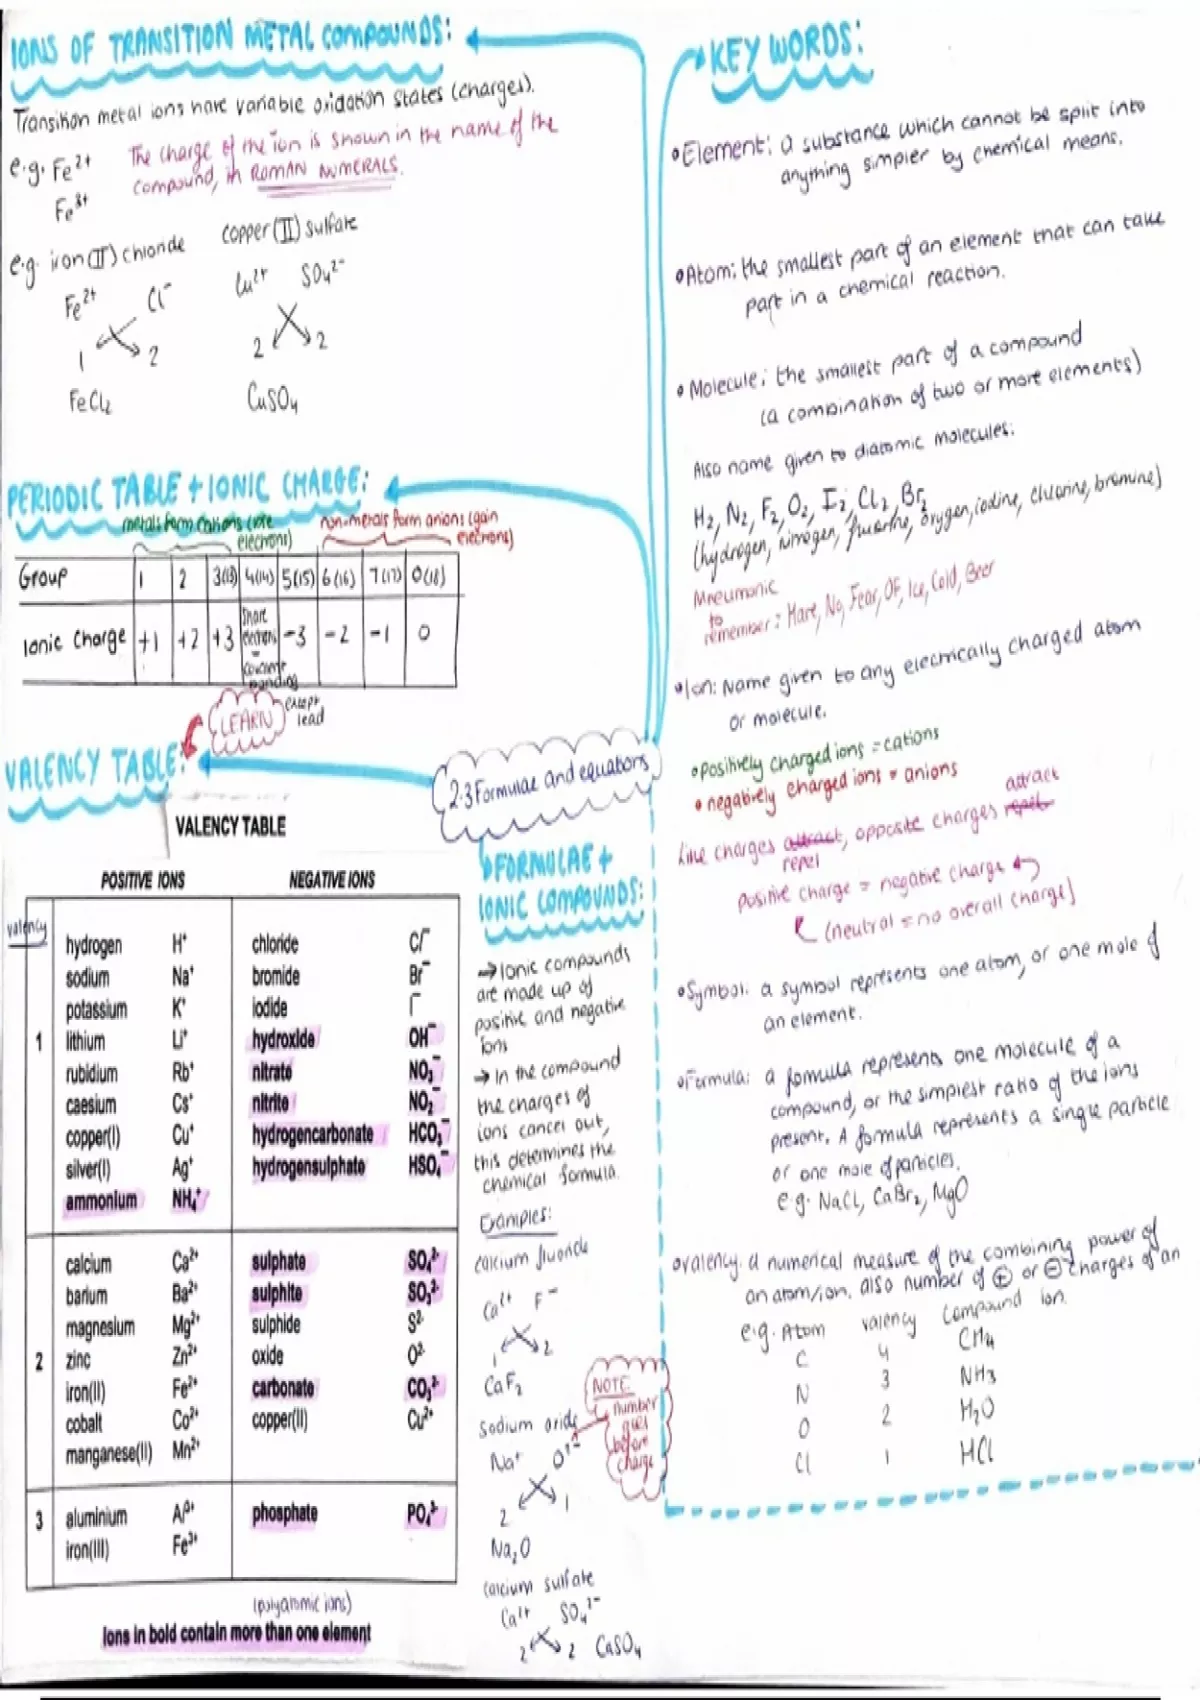 IONS OF TRANSITION METAL COMPOUNDS:
Transition metal ions have variable oxidation states (charges).
e.g. Fe²⁺
Fe³⁺
The charge of the ion is shown in the name of the
compound, in ROMAN NUMERALS.
e.g. iron(II) chloride
Fe²⁺ Cl⁻
1 2
FeCl₂
copper(II) sulfate
Cu²⁺ SO₄²⁻
2 2
CuSO₄
PERIODIC TABLE + IONIC CHARGE:
metals form cations (lose
electrons)
non-metals form anions (gain
electrons)
Group 1 2 3(13) 4(14) 5(15) 6(16) 7(17) 0(18)
Ionic Charge +1 +2 +3 Share electrons = covalent bonding -3 -2 -1 0
except
lead
LEARN
VALENCY TABLE:
2.3 Formulae and equations
VALENCY TABLE
POSITIVE IONS NEGATIVE IONS
valency
hydrogen H⁺ chloride Cl⁻
sodium Na⁺ bromide Br⁻
potassium K⁺ iodide I⁻
1 lithium Li⁺ hydroxide OH⁻
rubidium Rb⁺ nitrate NO₃⁻
caesium Cs⁺ nitrite NO₂⁻
copper(I) Cu⁺ hydrogencarbonate HCO₃⁻
silver(I) Ag⁺ hydrogensulphate HSO₄⁻
ammonium NH₄⁺
calcium Ca²⁺ sulphate SO₄²⁻
barium Ba²⁺ sulphite SO₃²⁻
magnesium Mg²⁺ sulphide S²⁻
2 zinc Zn²⁺ oxide O²⁻
iron(II) Fe²⁺ carbonate CO₃²⁻
cobalt Co²⁺ copper(II) Cu²⁺
manganese(II) Mn²⁺
3 aluminium Al³⁺ phosphate PO₄³⁻
iron(III) Fe³⁺
(polyatomic ions)
Ions in bold contain more than one element
FORMULAE +
IONIC COMPOUNDS:
→ Ionic compounds
are made up of
positive and negative
ions
→ In the compound
the charges of
ions cancel out,
this determines the
chemical formula.
Examples:
calcium fluoride
Ca²⁺ F⁻
1 2
CaF₂
Sodium oxide
Na⁺ O²⁻
2 1
Na₂O
NOTE:
number
goes
before
charge
calcium sulfate
Ca²⁺ SO₄²⁻
2 2 CaSO₄
KEY WORDS:
•Element: a substance which cannot be split into
anything simpler by chemical means.
•Atom: the smallest part of an element that can take
part in a chemical reaction.
•Molecule: the smallest part of a compound
(a combination of two or more elements)
Also name given to diatomic molecules:
H₂, N₂, F₂, O₂, I₂, Cl₂, Br₂
(hydrogen, nitrogen, fluorine, oxygen, iodine, chlorine, bromine)
Mneumonic
to
remember: Have, No, Fear, Of, Ice, Cold, Beer
•Ion: Name given to any electrically charged atom
or molecule.
•Positively charged ions = cations
•negatively charged ions = anions
attract
Like charges attract, opposite charges repel
repel
positive charge = negative charge
(neutral = no overall charge)
•Symbol: a symbol represents one atom, or one mole of
an element.
•Formula: a formula represents one molecule of a
compound, or the simplest ratio of the ions
present. A formula represents a single particle
or one mole of particles.
e.g. NaCl, CaBr₂, MgO
•valency: a numerical measure of the combining power of
an atom/ion. also number of ⊕ or ⊖ charges of an
ion.
e.g. Atom valency Compound
C 4 CH₄
N 3 NH₃
O 2 H₂O
Cl 1 HCl